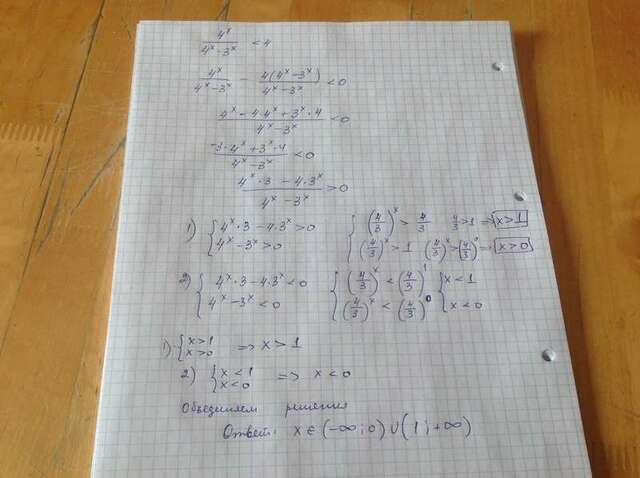 4^x / (4^x - 3^x) < 4
4^x / (4^x - 3^x) - 4(4^x - 3^x) / (4^x - 3^x) < 0
(4^x - 4·4^x + 3^x·4) / (4^x - 3^x) < 0
(-3·4^x + 3^x·4) / (4^x - 3^x) < 0
(4^x·3 - 4·3^x) / (4^x - 3^x) > 0
1) { 4^x·3 - 4·3^x > 0 { (4/3)^x > 4/3 4/3 > 1 => x > 1
4^x - 3^x > 0 (4/3)^x > 1 (4/3)^x > (4/3)^0 => x > 0
2) { 4^x·3 - 4·3^x < 0 { (4/3)^x < (4/3)^1 { x < 1
4^x - 3^x < 0 (4/3)^x < (4/3)^0 x < 0
1) { x > 1 => x > 1
x > 0
2) { x < 1 => x < 0
x < 0
Объединяем решения
Ответ: x ∈ (-∞; 0) ∪ (1; +∞)